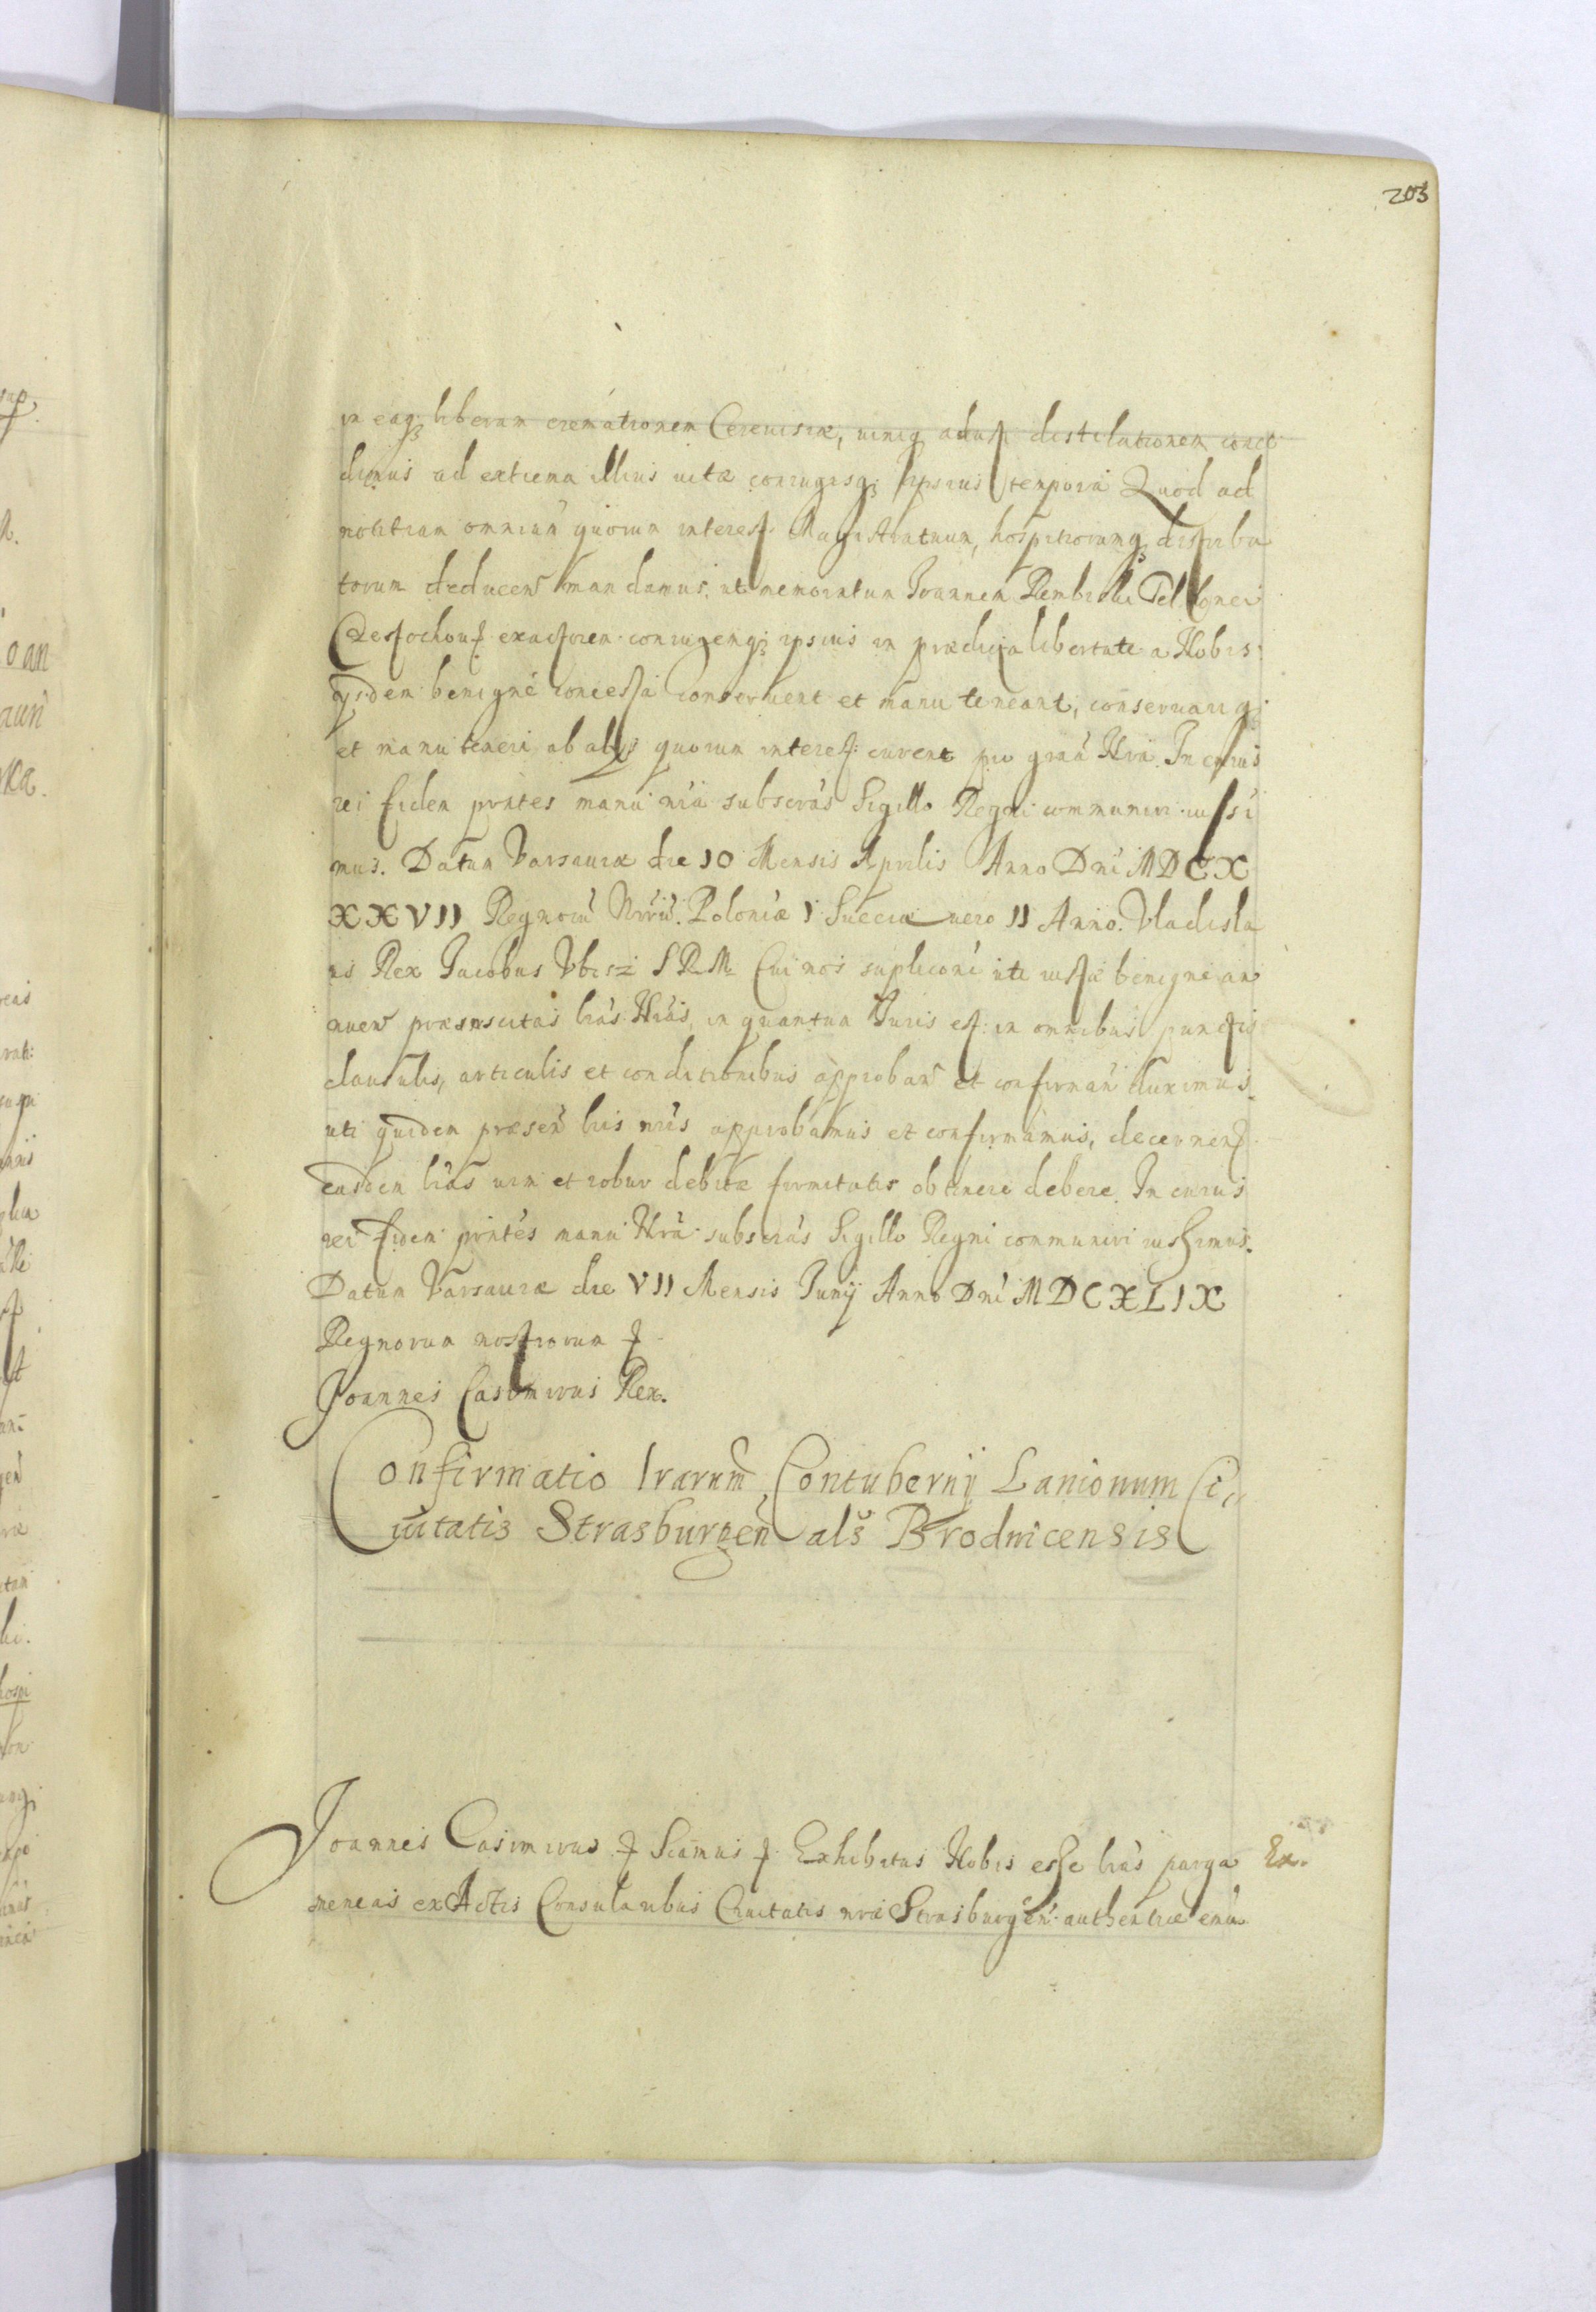 203
in eaq₃ liberam cremationem Cereuisiæ, uiniq₃ adust distilationem conce
dimus ad extrema illius uitæ coniugisq₃ ipsius tempora Quod ad
notitiam omnium quorum interest Magistratuum, hospitiorumq₃ distribu
torum deducen mandamus, ut memoratum Joannem Telonei
exactorem coniugemq₃ ipsius in prædicta libertate a Nobis
ijsdem benigne concessa conseruent et manu teneant, conseruariq₃
et manu teneri ab alijs quorum interest curent pro gratia Nra. In cuius
rei fidem pntes manu nra subscras Sigillo Regni communiri iussi
mus. Datum Varsauiæ die 10 Mensis Aprilis Anno Dni MDCX
XXVII Regnorū Nrrū. Poloniæ I Sueciæ uero II Anno. Vladisla
us Rex Jacobus S R M Cui nos supliconi uti iustæ benigne an
nuen præinsertas lras Nras, in quantum Juris est: in omnibus punctis
clausulis, articulis et conditionibus approban et confirman duximus.
uti quidem præsen lris nris approbamus et confirmamus, decernen
easdem lras uim et robur debitæ firmitatis obtinere debere. In cuius
rei fidem pntes manu Nra subscras Sigillo Regni communiri iussimus.
Datum Varsauiæ die VII Mensis Junij Anno Dni MDCXLIX
Regnorum nostrorum
Joannes Casimirus Rex.
Confirmatio lrarum Contubernij Lanionum Ci„
uitatis Strasburgen als Brodnicensis
Joannes Casimirus Sicamus Exhibitas Nobis esse lras parga Ex.
meneas ex Actis Consularibus Ciuitatis nræ Strasburgen authentice emā